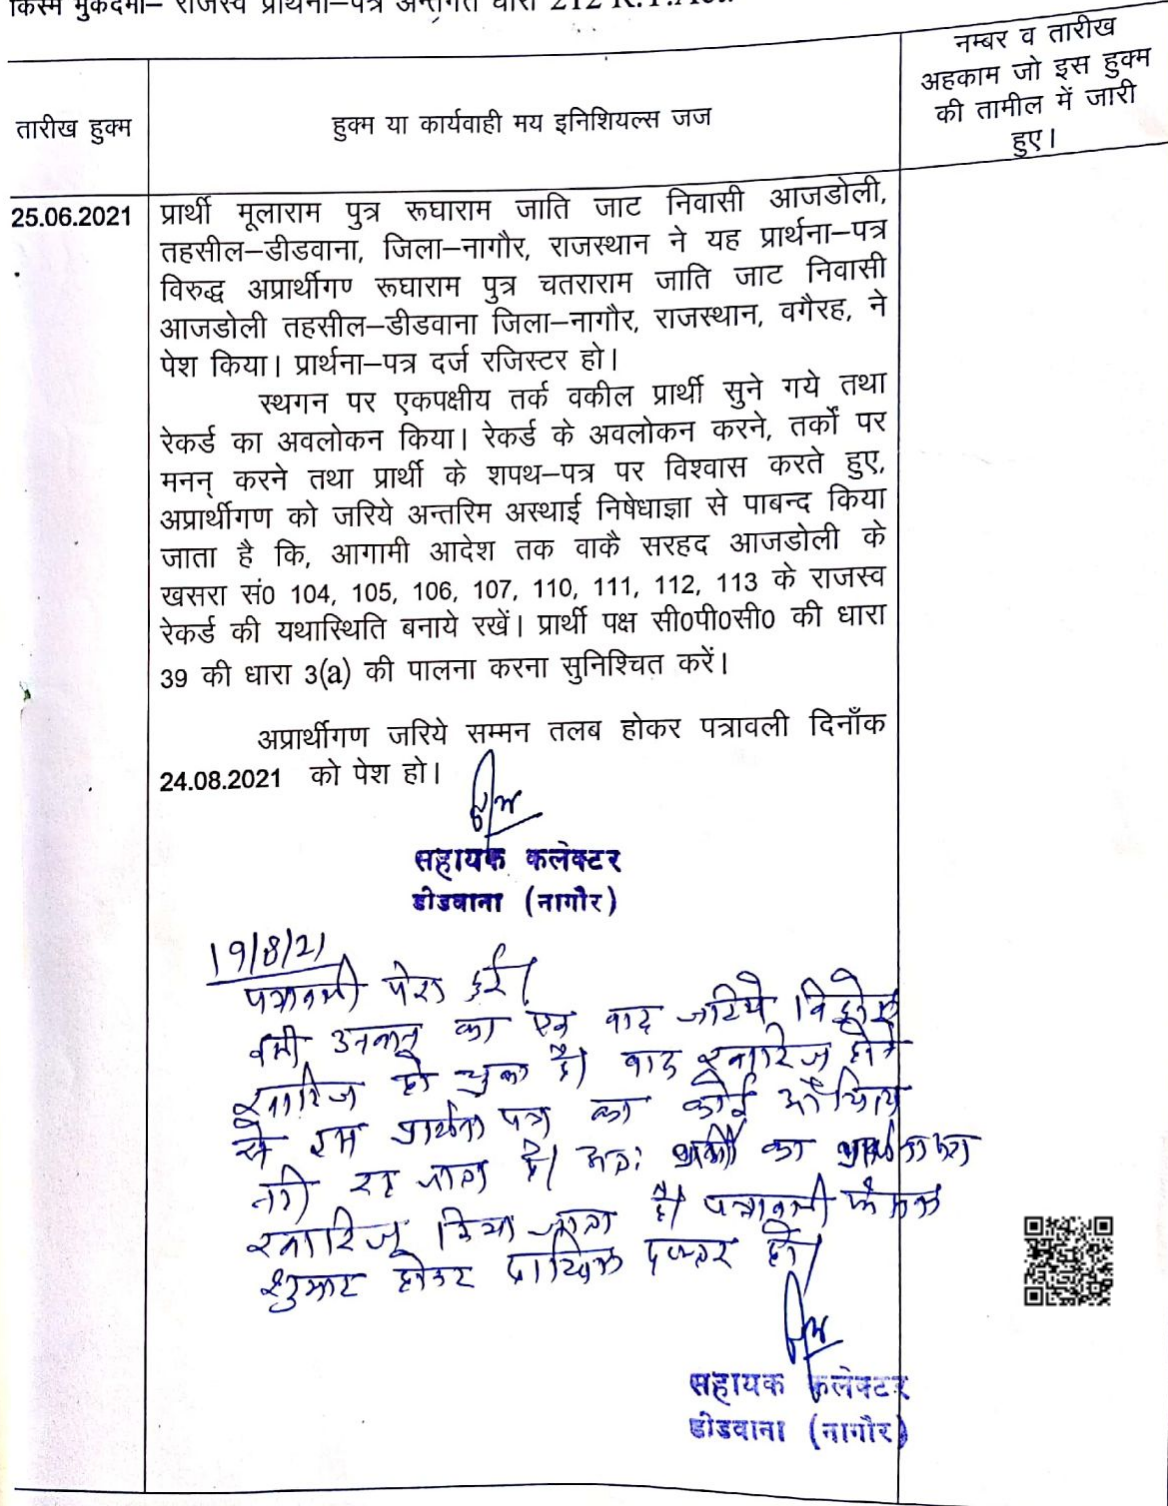 किस्म मुकदमा– राजस्व प्रार्थना–पत्र अन्तर्गत धारा 212 R.T.Act.
तारीख हुक्म
हुक्म या कार्यवाही मय इनिशियल्स जज
नम्बर व तारीख
अहकाम जो इस हुक्म
की तामील में जारी
हुए।
25.06.2021
प्रार्थी मूलाराम पुत्र रूघाराम जाति जाट निवासी आजडोली,
तहसील–डीडवाना, जिला–नागौर, राजस्थान ने यह प्रार्थना–पत्र
विरुद्ध अप्रार्थीगण रूघाराम पुत्र चतराराम जाति जाट निवासी
आजडोली तहसील–डीडवाना जिला–नागौर, राजस्थान, वगैरह, ने
पेश किया। प्रार्थना–पत्र दर्ज रजिस्टर हो।
स्थगन पर एकपक्षीय तर्क वकील प्रार्थी सुने गये तथा
रेकर्ड का अवलोकन किया। रेकर्ड के अवलोकन करने, तर्कों पर
मनन् करने तथा प्रार्थी के शपथ–पत्र पर विश्वास करते हुए,
अप्रार्थीगण को जरिये अन्तरिम अस्थाई निषेधाज्ञा से पाबन्द किया
जाता है कि, आगामी आदेश तक वाकै सरहद आजडोली के
खसरा सं0 104, 105, 106, 107, 110, 111, 112, 113 के राजस्व
रेकर्ड की यथास्थिति बनाये रखें। प्रार्थी पक्ष सी0पी0सी0 की धारा
39 की धारा 3(a) की पालना करना सुनिश्चित करें।
अप्रार्थीगण जरिये सम्मन तलब होकर पत्रावली दिनाँक
24.08.2021 को पेश हो।
सहायक कलेक्टर
डीडवाना (नागौर)
19/8/21
पत्रावली पेश हुई।
का एक वाद जरिये विड्रोल
खारिज हो चुका है। वाद खारिज होने
से इस प्रार्थना पत्र का कोई औचित्य
नही रह जाता है। अतः प्रार्थी का प्रार्थना पत्र
खारिज किया जाता है। पत्रावली फैसल
शुमार होकर दाखिल दफ्तर हो।
सहायक कलेक्टर
डीडवाना (नागौर)